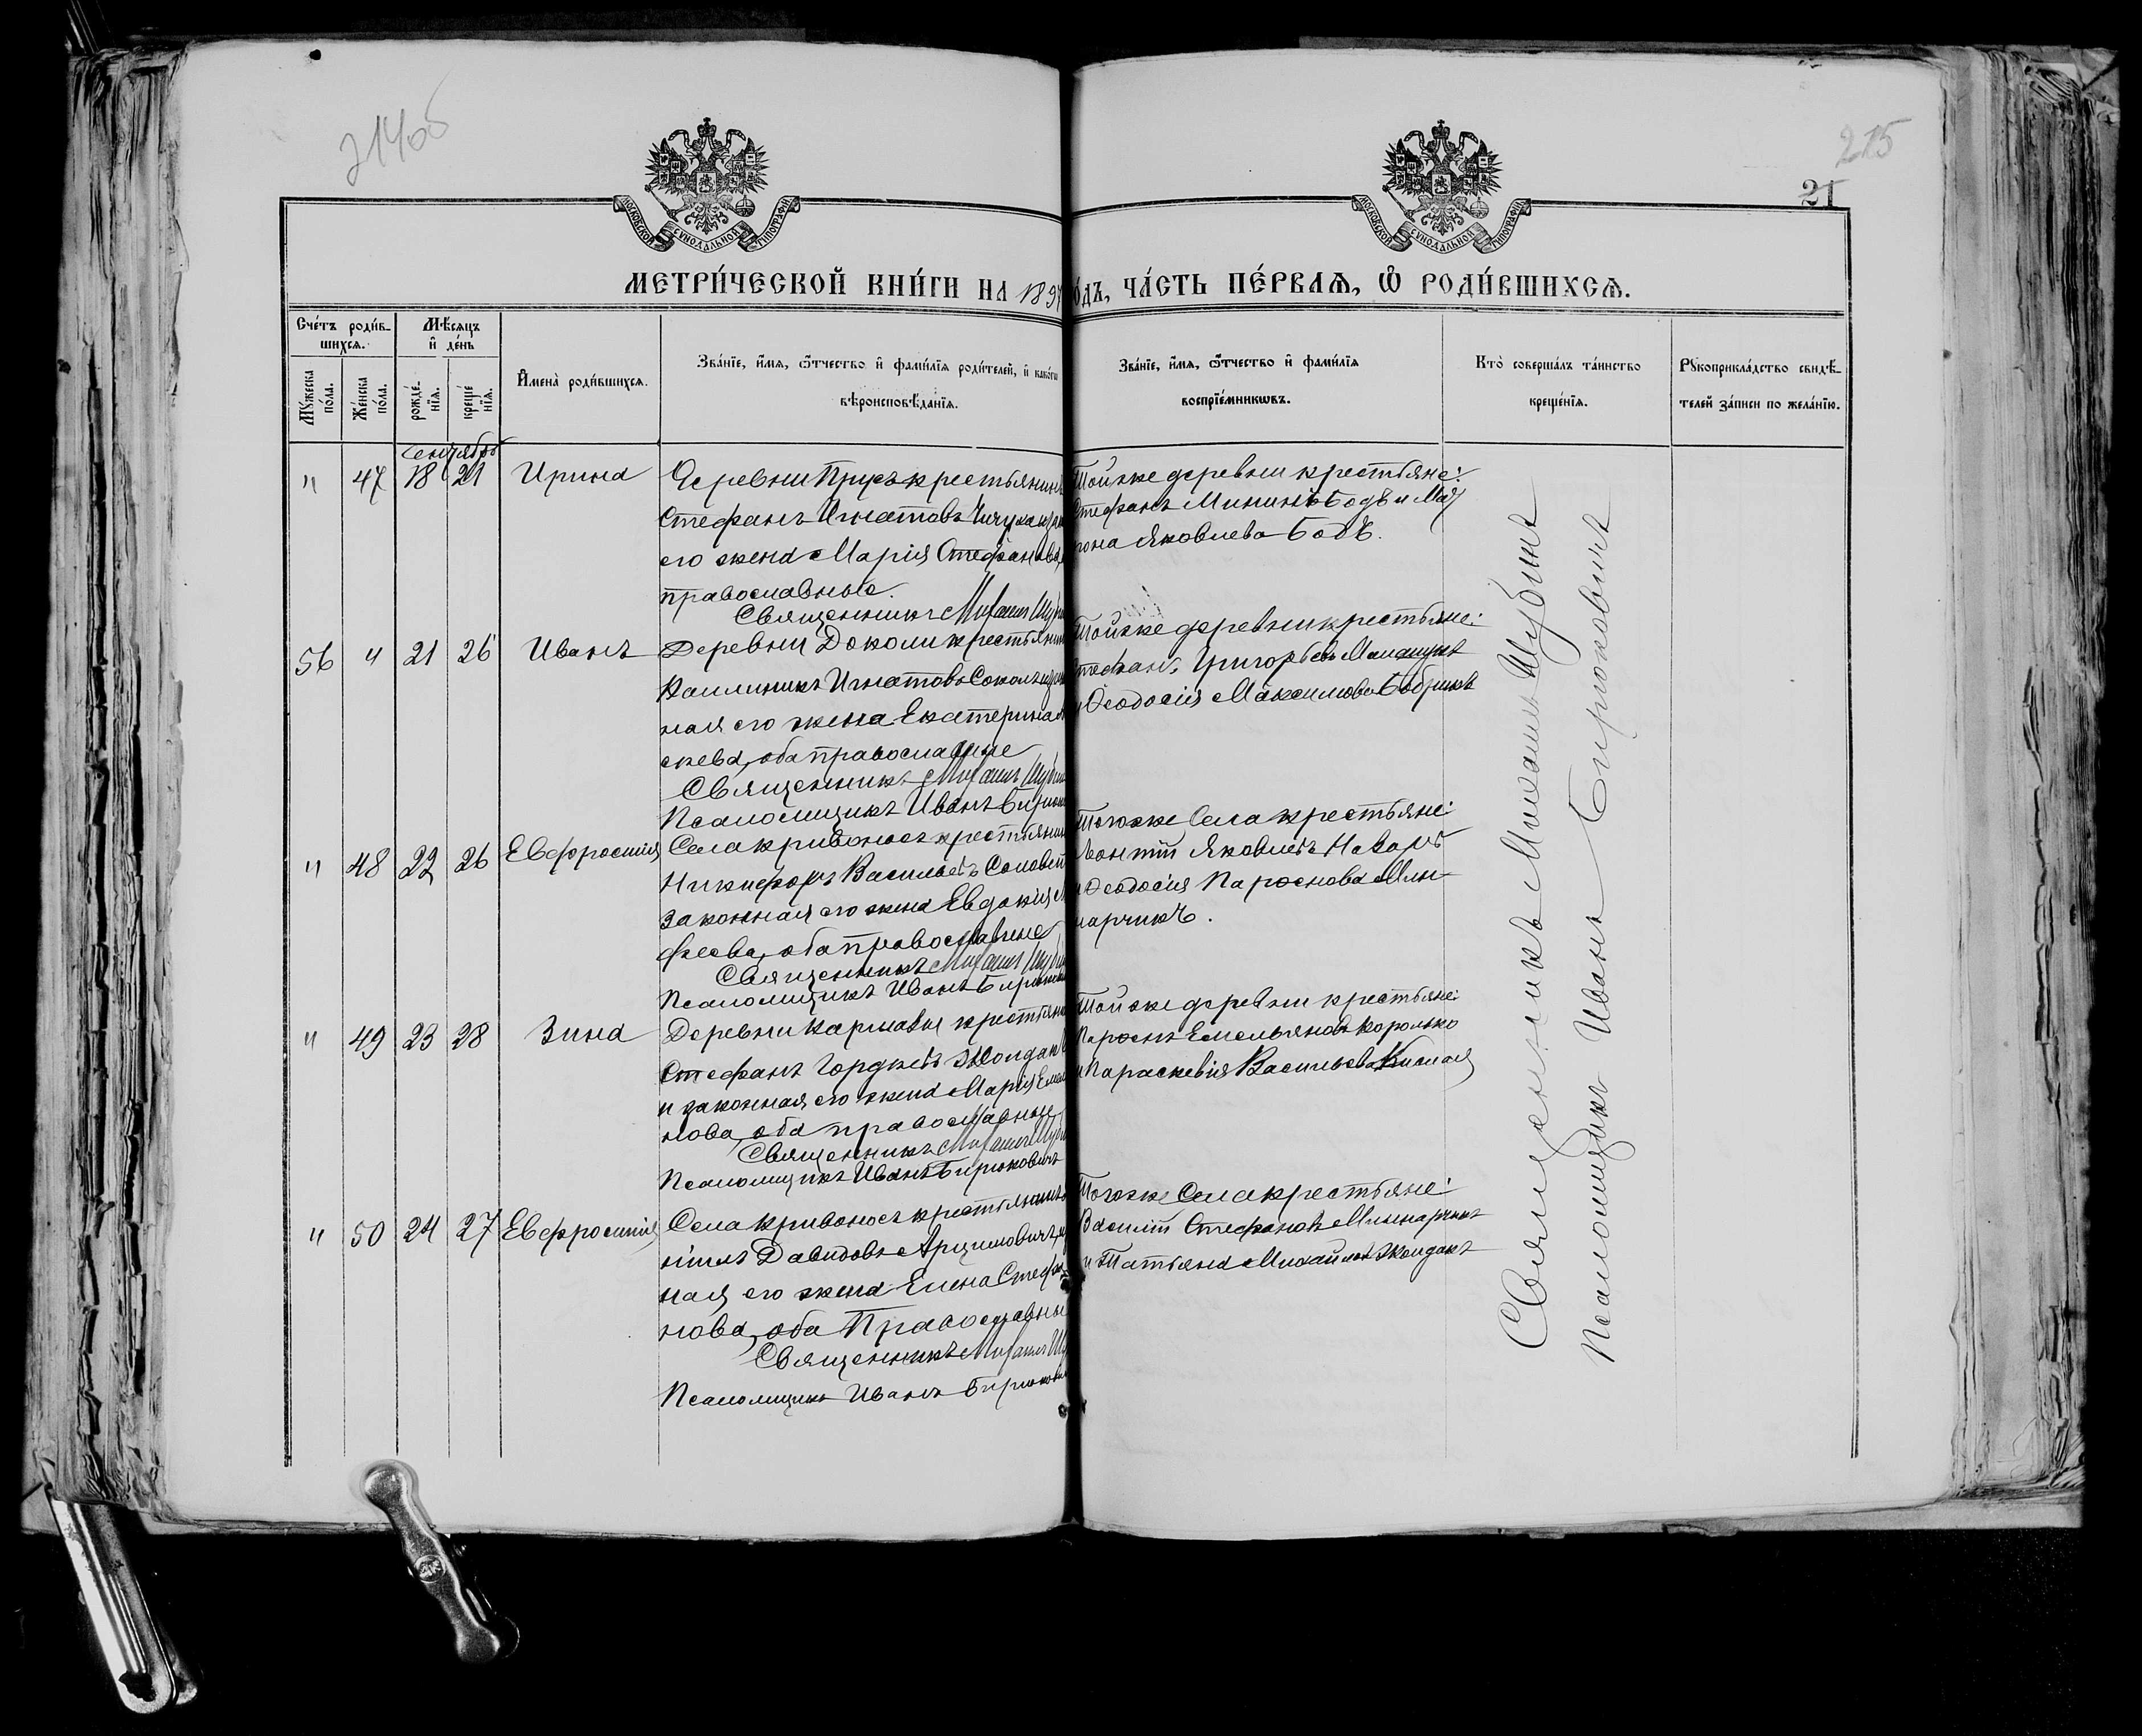 214об
215
21
МОСКОВСКОЙ СѴНОДАЛЬНОЙ ТИПОГРАФІИ
МОСКОВСКОЙ СѴНОДАЛЬНОЙ ТИПОГРАФІИ
МЕТРИ́ЧЕСКОЙ КНИ́ГИ НА 189 ОДЪ, ЧА́СТЬ ПЕ́РВАѦ, Ѡ РОДИ́ВШИХСѦ.
Сче́тъ роди́в-
шихсѧ.
Мѣ́сѧцъ
и҆ де́нь
Мꙋ́жеска
по́ла.
Же́нска
по́ла.
рожде́-
нїѧ.
креще́
нїѧ.
И҆мена̀ роди́вшихсѧ.
Зва́нїе, и҆́мѧ, ѻ҆́тчество и҆ фами́лїѧ роди́телей, и҆ како́гѡ
вѣроисповѣ́данїѧ.
Зва́нїе, и҆́мѧ, ѻ҆́тчество и҆ фами́лїѧ
воспрїе́мникѡвъ.
Кто̀ соверша́лъ та́инство
креще́нїѧ.
Рꙋкоприкла́дство свидѣ́-
телей за́писи по жела́нїю.
Сентябрь
" 47 18 21 Ирина
Деревни Прусъ крестьянинъ
Стефанъ Игнатовъ
его жена Марія Стефанова,
православные.
Священникъ Михаилъ Шуби
Тойже деревни крестьяне:
Стефанъ Мининъ Бодъ и Мат
рона Яковлева Бодъ.
56 " 21 26 Иванъ
Деревни Доколи крестьянинъ
Каллиникъ Игнатовъ
ная его жена Екатерина
еева, оба православные
Священникъ Михаилъ Шуби
Псаломщикъ Иванъ Бирюк
Тойже деревни крестьяне:
Стефанъ Григорьевъ
и Ѳеодосія Максимова Бобрикъ
" 48 22 26 Евфросинія
Села Кривоносъ крестьянинъ
Никифоръ Васильевъ Соловей
законная его жена Евдокія
феева, оба православные
Священникъ Михаилъ Шуби
Псаломщикъ Иванъ Бирюков
Тогоже Села крестьяне:
Леонтій Яковлевъ
и Ѳеодосія Мли-
нарчикъ.
" 49 23 28 Зина
Деревни крестьянинъ
Стефанъ Гордѣевъ Жолдакъ
и законная его жена Марія Емел
нова, оба православные
Священникъ Михаилъ Шуби
Псаломщикъ Иванъ Бирюковичъ
Тойже деревни крестьяне:
Емельяновъ Королько
и Параскевія Васильева
" 50 24 27 Евфросинія
Села Кривоносъ крестьянинъ
Давидовъ Арцимовичъ,
ная его жена Елена Стефа-
нова, оба Православны
Священникъ Михаилъ Шу
Псаломщикъ Иванъ Бирюкови
Тогоже Села крестьяне:
Василій Стефановъ Млинарчикъ
и Татьяна Михайлова Жолдакъ
Священникъ Михаилъ Шубинъ
Псаломщикъ Иванъ Бирюковичъ